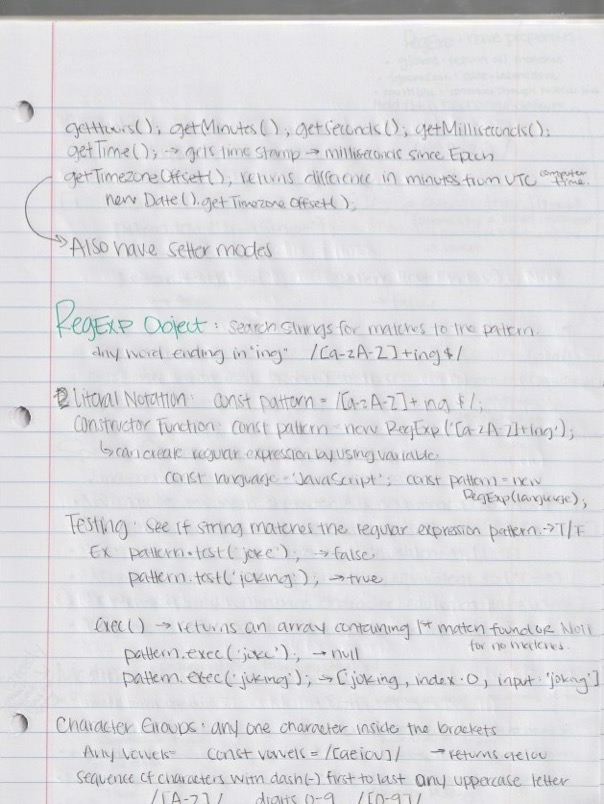 getHours(); getMinutes(); getSeconds(); getMilliseconds();
getTime(); → gets time stamp → milliseconds since Epoch
getTimezoneOffset(); returns difference in minutes from UTC computer time.
new Date().getTimezoneOffset();
→ Also have setter modes
RegExp Object: search strings for matches to the pattern.
Any word ending in "ing" /[a-zA-Z]+ing$/
Literal Notation: const pattern = /[a-zA-Z]+ing$/;
Constructor Function: const pattern = new RegExp('[a-zA-Z]+ing');
↳ can create regular expression by using variable
const language = 'JavaScript'; const pattern = new
RegExp(language);
Testing: see if string matches the regular expression pattern. → T/F
Ex. pattern.test('joke'); → false
pattern.test('joking'); → true
exec() → returns an array containing 1st match found OR Null
for no matches.
pattern.exec('joke'); → null
pattern.exec('joking'); → ['joking', index: 0, input: 'joking']
Character Groups: any one character inside the brackets
Any vowels = const vowels = /[aeiou]/ → returns aeiou
Sequence of characters with dash(-) first to last any uppercase letter
/[A-Z]/ digits 0-9 /[0-9]/